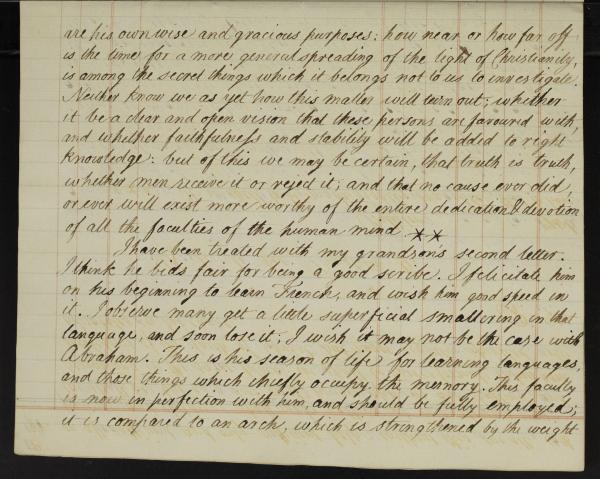 are his own wise and gracious purposes: how near or how far off
is the time for a more general spreading of the light of Christianity,
is among the secret things which it belongs not to us to investigate.
Neither know we as yet how this matter will turn out; whether
it be a clear and open vision that these persons are favoured with,
and whether faithfulness and stability will be added to right
knowledge: but of this we may be certain, that truth is truth,
whether men receive it or reject it; and that no cause ever did,
or ever will exist more worthy of the entire dedication & devotion
of all the faculties of the human mind. ××
I have been treated with my grandson's second letter.
I think he bids fair for being a good scribe. I felicitate him
on his beginning to learn French, and wish him good speed in
it. I observe many get a little superficial smattering in that
language, and soon lose it; I wish it may not be the case with
Abraham. This is his season of life for learning languages,
and those things which chiefly occupy the memory. This faculty
is now in perfection with him, and should be fully employed;
it is compared to an arch, which is strengthened by the weight